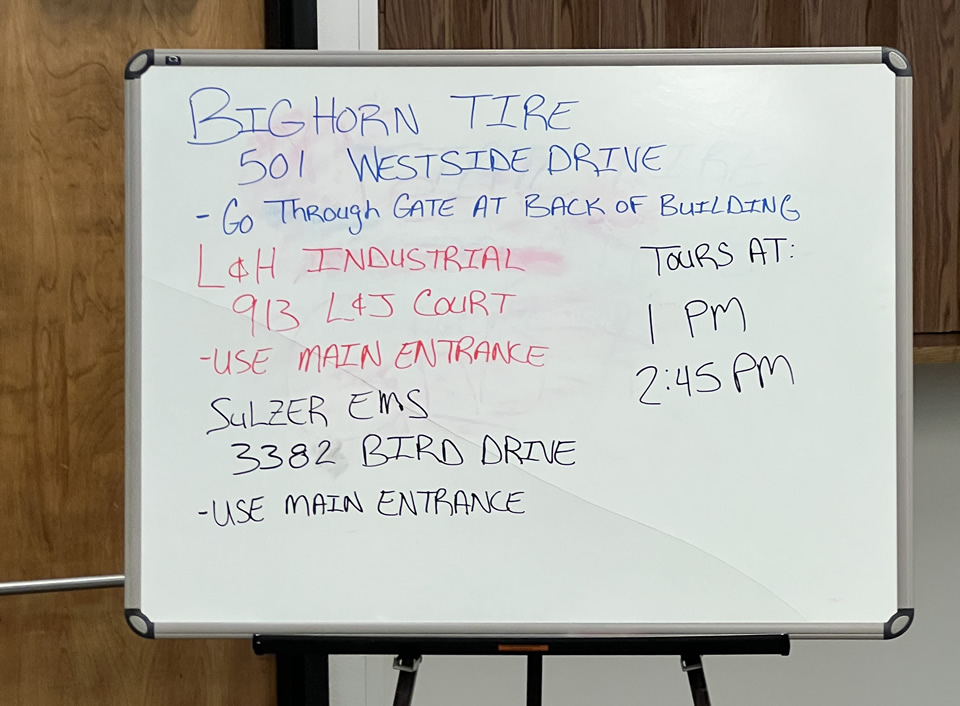 BIGHORN TIRE
501 WESTSIDE DRIVE
- Go Through GATE AT BACK OF BUILDING
L&H INDUSTRIAL
913 L&J COURT
-USE MAIN ENTRANCE
SULZER EMS
3382 BIRD DRIVE
-USE MAIN ENTRANCE
TOURS AT:
1 PM
2:45 PM